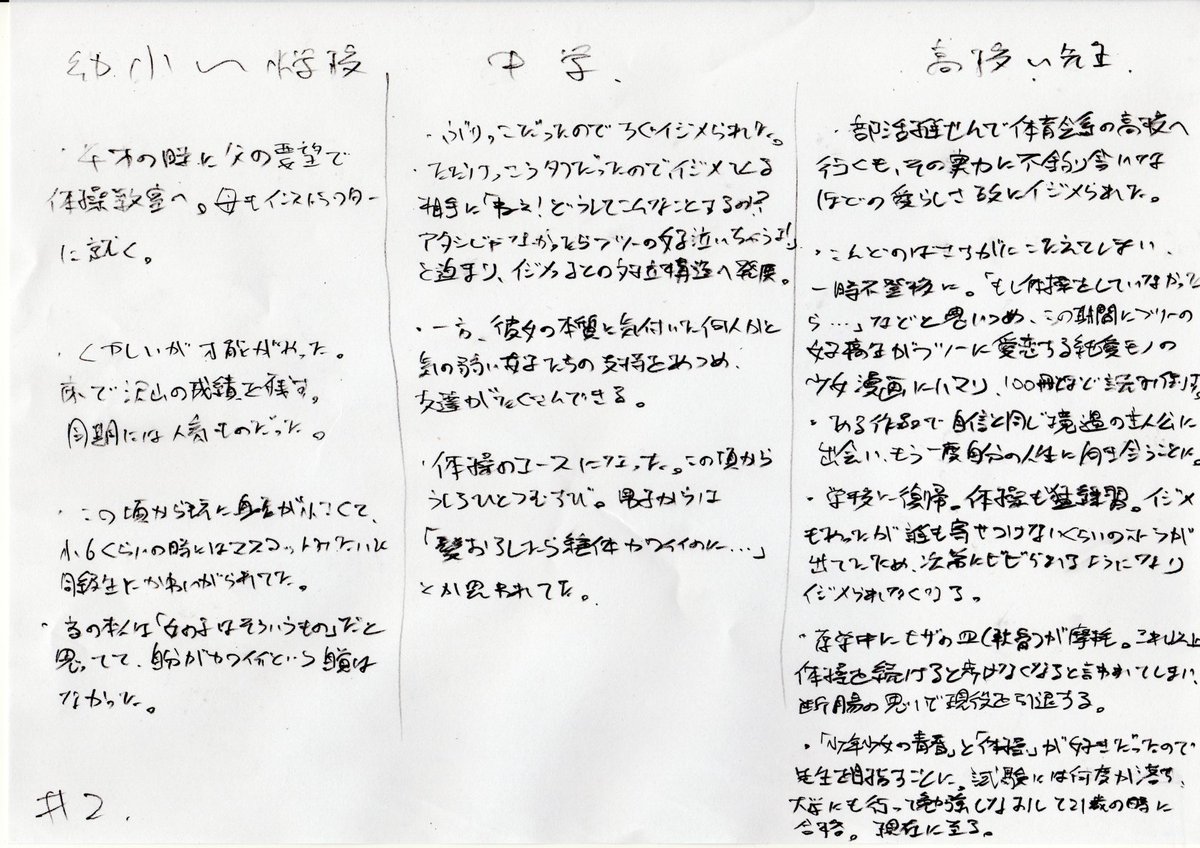 幼小〜学校
・4才の時に父の要望で
体操教室へ。母もインストラクター
に就く。
・くやしいが才能があった。
床で沢山の成績を残す。
同期には人気ものだった。
・この頃から既に身長が小さくて、
小6くらいの時にはマスコットみたいに
同級生にかわいがられてた。
・当の本人は「女の子はそういうもの」だと
思ってて、自分がカワイイという自負は
なかった。
#2.
中学.
・ぶりっこだったのでろくイジメられた。
・ただけっこうタフだったので、イジメてくる
相手に「ねぇ!どうしてこんなことするの?
アタシじゃなかったらフツーの女子泣いちゃうよ!」
と迫まり、イジメっ子との対立構造へ発展。
・一方、彼女の本質に気付いた何人かと
気の弱い女子たちの支持をあつめ、
友達がたくさんできる。
・体操のエースになった。この頃から
うしろひとつむすび。男子からは
「髪おろしたら絶体カワイイのに…」
とか思われてた。
高校〜先生.
・部活推せんで体育会系の高校へ
行くも、その実力に不釣り合いな
ほどの愛らしさ故にイジメられた。
・こんどのはさすがにこたえてしまい、
一時不登校に。「もし体操をしていなかった
ら…」などと思いつめ、この期間にフツーの
女子高生がフツーに愛恋する純愛モノの
少女漫画にハマり、100冊ほど読み倒す。
・ある作品で自信と同じ境遇の主人公に
出会い、もう一度自分の人生に向き合うことに。
・学校に復帰。体操も猛練習。イジメ
もあったが誰も寄せつけないくらいのオーラが
出てたため、次第にビビられるようになり
イジメられなくなる。
・在学中にヒザの皿(軟骨)が摩耗。これ以上
体操を続けると歩けなくなると言われてしまい、
断腸の思いで現役を引退する。
・「少年少女の青春」と「体操」が好きだったので
先生を目指すことに。試験には何度か落ち、
大学にも行って勉強しなおして21歳の時に
合格。現在に至る。